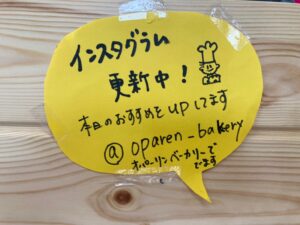 インスタグラム
更新中！
本日のおすすめをupしてます
@ oparen_bakery
オパーリンベーカリーで
でます